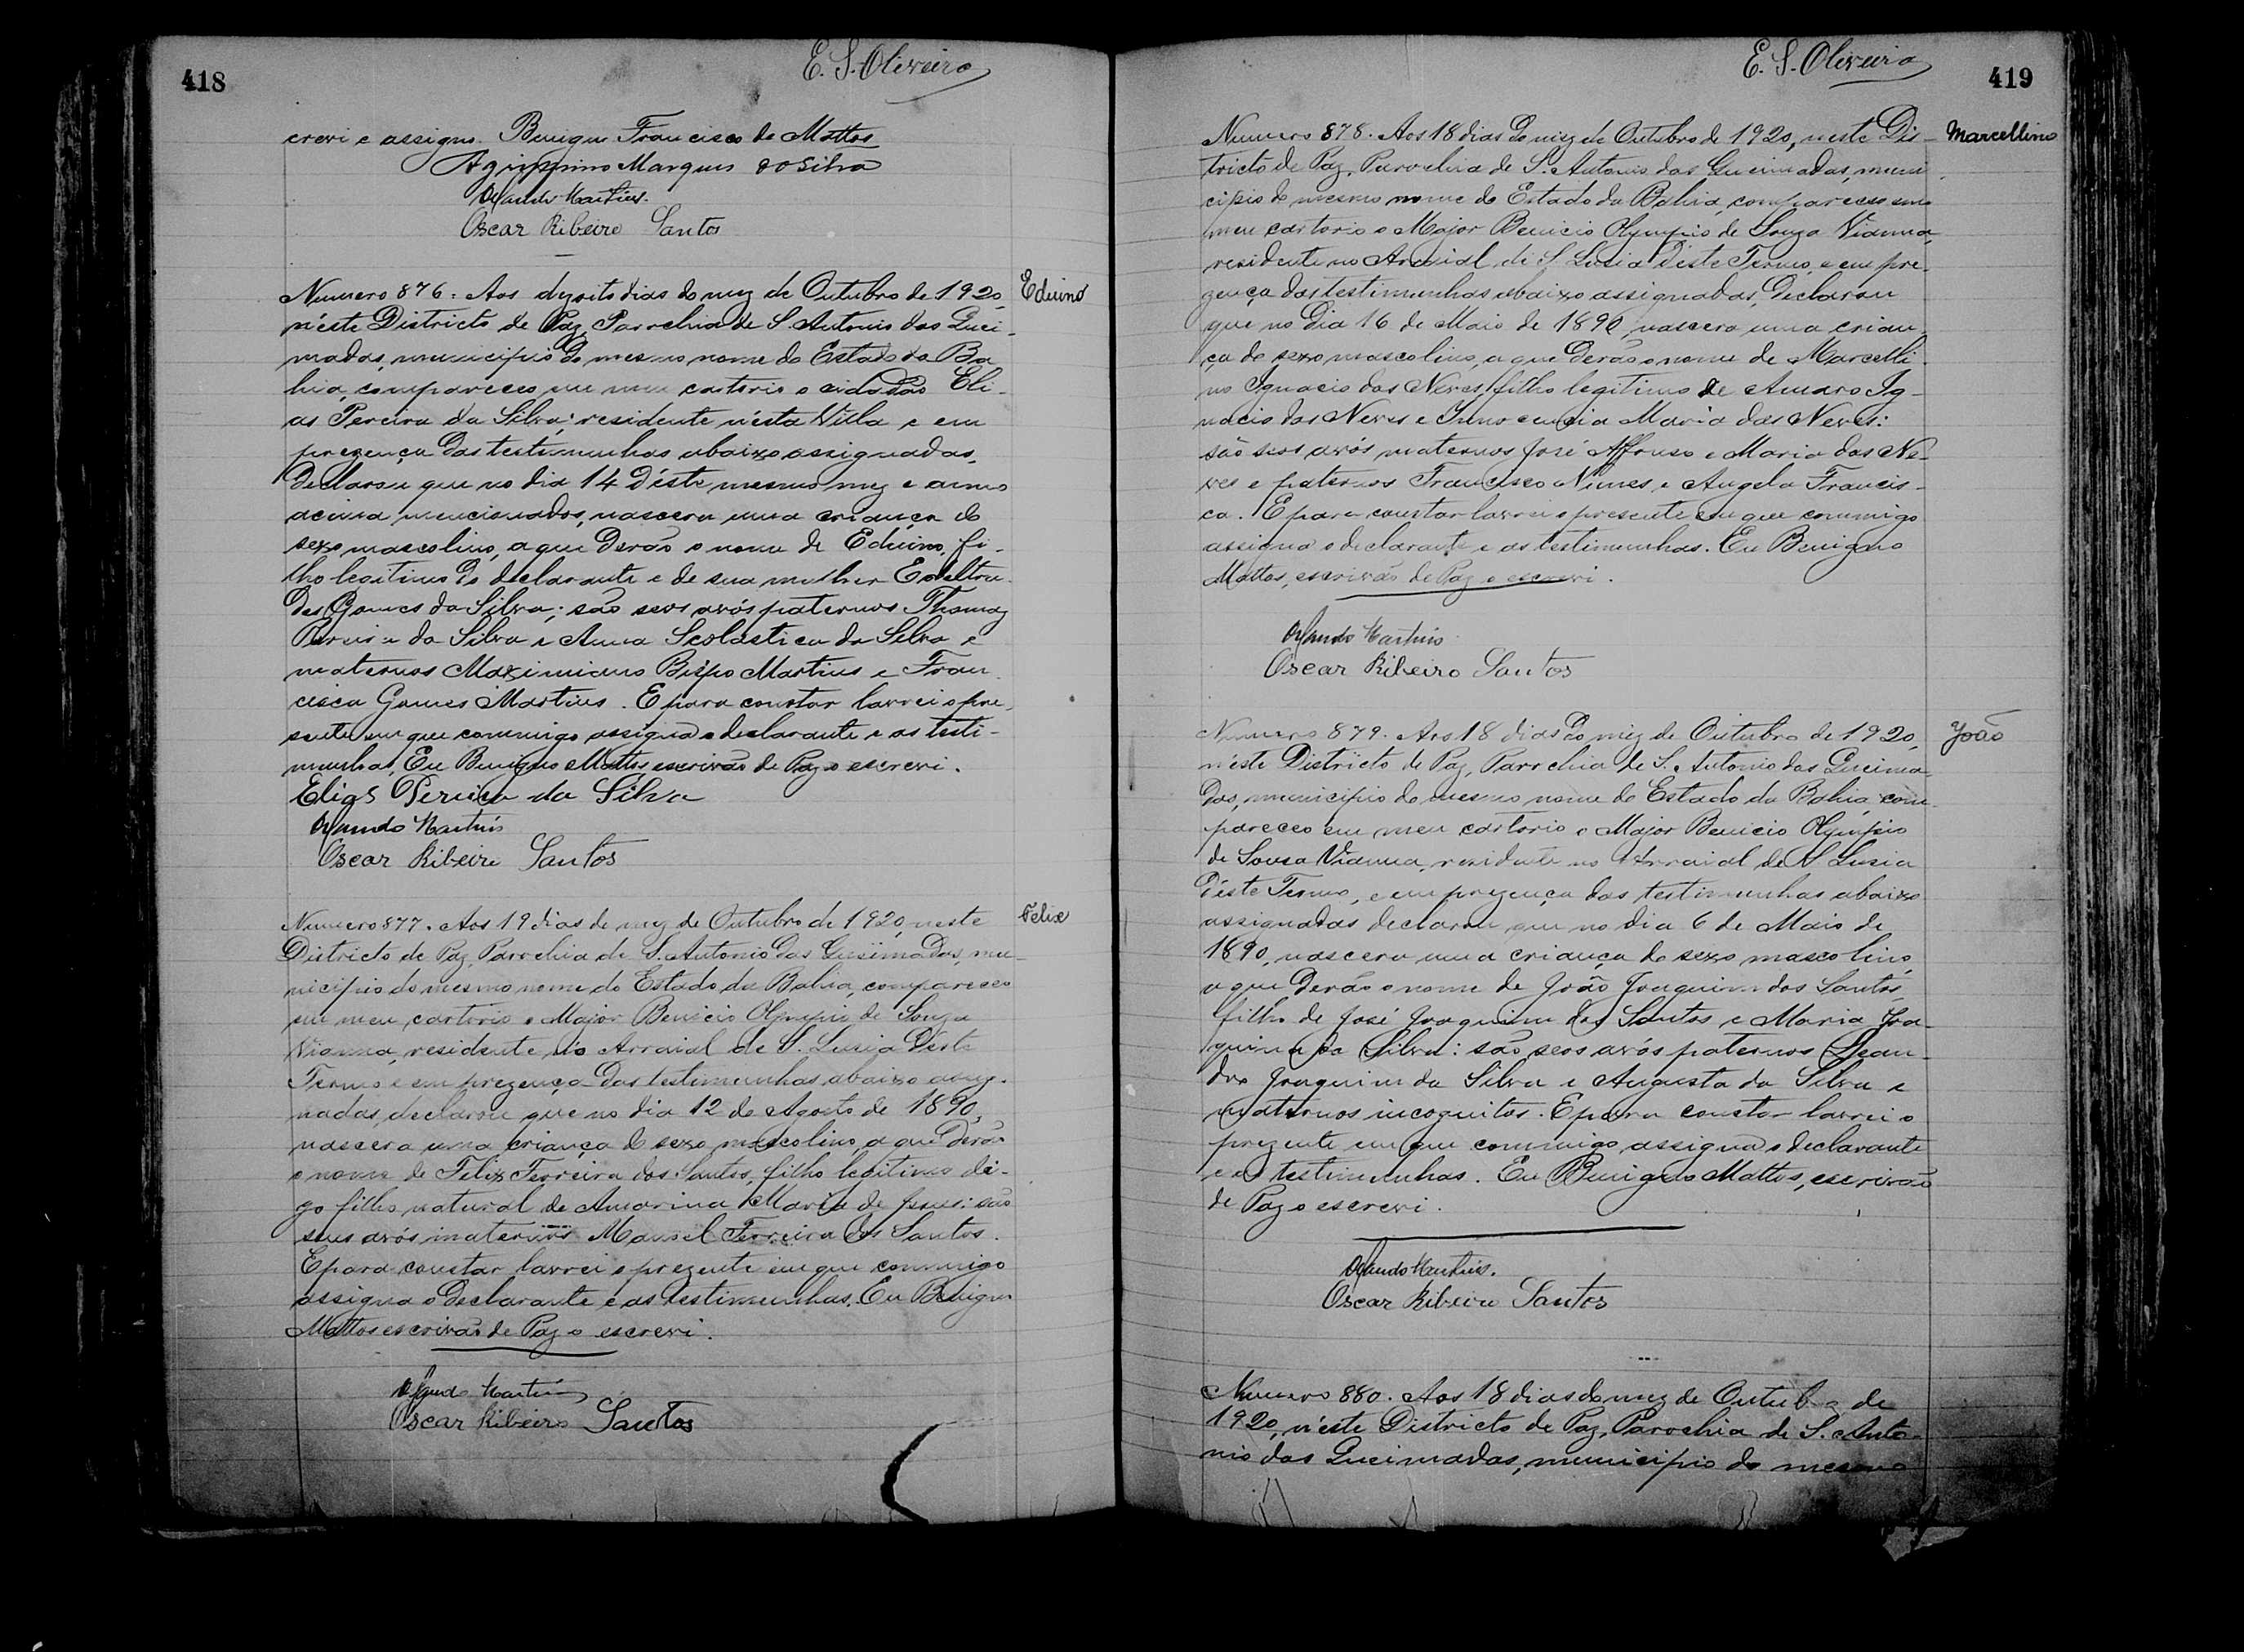 418
E. S. Oliveira
crevi e assigno. Benigno Francisco de Mattos
Agrippino Marques da Silva
Orlando Martins.
Oscar Ribeiro Santos
Numero 876. Aos dezoito dias do mez de Outubro de 1920,
Eduino
n'éste Districto de Paz, Parochia de S. Antonio das Quei-
madas, municipio do mesmo nome do Estado da Ba
hia, compareceo em meu cartorio o cidadão Eli-
as Pereira da Silva, residente n'ésta Villa e em
prezença das testimunhas abaixo assignadas,
declarou que no dia 14 d'éste mesmo mez e anno
acima mencionados, nascera uma criança do
sexo mascolino, a que derão o nome de Eduino, fi-
lho legitimo do declarante e de sua mulher
des Gomes da Silva; são seos avós paternos Thomaz
Pereira da Silva e Anna Scolastica da Silva e
maternos Maximiano Bispo Martins e Fran-
cisca Gomes Martins. E para constar lavrei o pre-
sente em que commigo assigna o declarante e as testi-
munhas, Eu Benigno Mattos escrivão de Paz o escrevi.
Elias Pereira da Silva
Orlando Martins
Oscar Ribeiro Santos
Numero 877. Aos 19 dias do mez de Outubro de 1920, neste
Felix
Districto de Paz, Parochia de S. Antonio das Queimadas, mu-
nicipio do mesmo nome do Estado da Bahia, compareceo
em meu cartorio o Major Benicio Olympio de Souza
Vianna, residente no Arraial de S. Lusia d'éste
Termo e em prezença das testimunhas abaixo assig-
nadas, declarou que no dia 12 de Agosto de 1890,
nascera uma criança do sexo mascolino, a que derão
o nome de Felix Ferreira dos Santos, filho legitimo di-
go filho natural de Amarina Maria de Jesus: são
seus avós maternos Manoel Ferreira dos Santos.
E para constar lavrei o prezente em que commigo
assigna o declarante e as testimunhas. Eu Benigno
Mattos escrivão de Paz o escrevi.
Orlando Martins
Oscar Ribeiro Santos
E. S. Oliveira
419
Numero 878. Aos 18 dias do mez de Outubro de 1920, neste Dis-
Marcellino
tricto de Paz, Parochia de S. Antonio das Queimadas, muni
cipio do mesmo nome do Estado da Bahia, compareceo em
meu cartorio o Major Benicio Olympio de Souza Vianna,
residente no Arraial de S. Lusia d'éste Termo, e em pre-
zença das testimunhas abaixo assignadas, declarou
que no dia 16 de Maio de 1890, nascera uma crian-
ça do sexo mascolino, a que derão o nome de Marcelli-
no Ignacio das Neves, filho legitimo de Amaro Ig-
nacio das Neves e Innocencia Maria das Neves:
são seos avós maternos José Affonso e Maria das Ne-
ves e paternos Francisco Nunes e Angela Francis-
ca. E para constar lavrei o presente em que commigo
assigna o declarante e as testimunhas. Eu Benigno
Mattos, escrivão de Paz o escrevi.
Orlando Martins
Oscar Ribeiro Santos
Numero 879. Aos 18 dias do mez de Outubro de 1920,
João
n'éste Districto de Paz, Parochia de S. Antonio das Queima-
das, municipio do mesmo nome do Estado da Bahia, com-
pareceo em meu cartorio o Major Benicio Olympio
de Sousa Vianna, residente no Arraial de S. Lusia
d'éste Termo, e em prezença das testimunhas abaixo
assignadas declarou que no dia 6 de Maio de
1890, nascera uma criança do sexo mascolino,
a que derão o nome de João Joaquim dos Santos,
filho de José Joaquim dos Santos e Maria Joa-
quina da Silva: são seos avós paternos Lean-
dro Joaquim da Silva e Augusta da Silva e
maternos incognitos. E para constar lavrei o
prezente em que commigo assigna o declarante
e as testimunhas. Eu Benigno Mattos, escrivão
de Paz o escrevi.
Orlando Martins.
Oscar Ribeiro Santos
Numero 880. Aos 18 dias do mez de Outubro de
1920, n'éste Districto de Paz, Parochia de S. Anto-
nio das Queimadas, municipio do mesmo